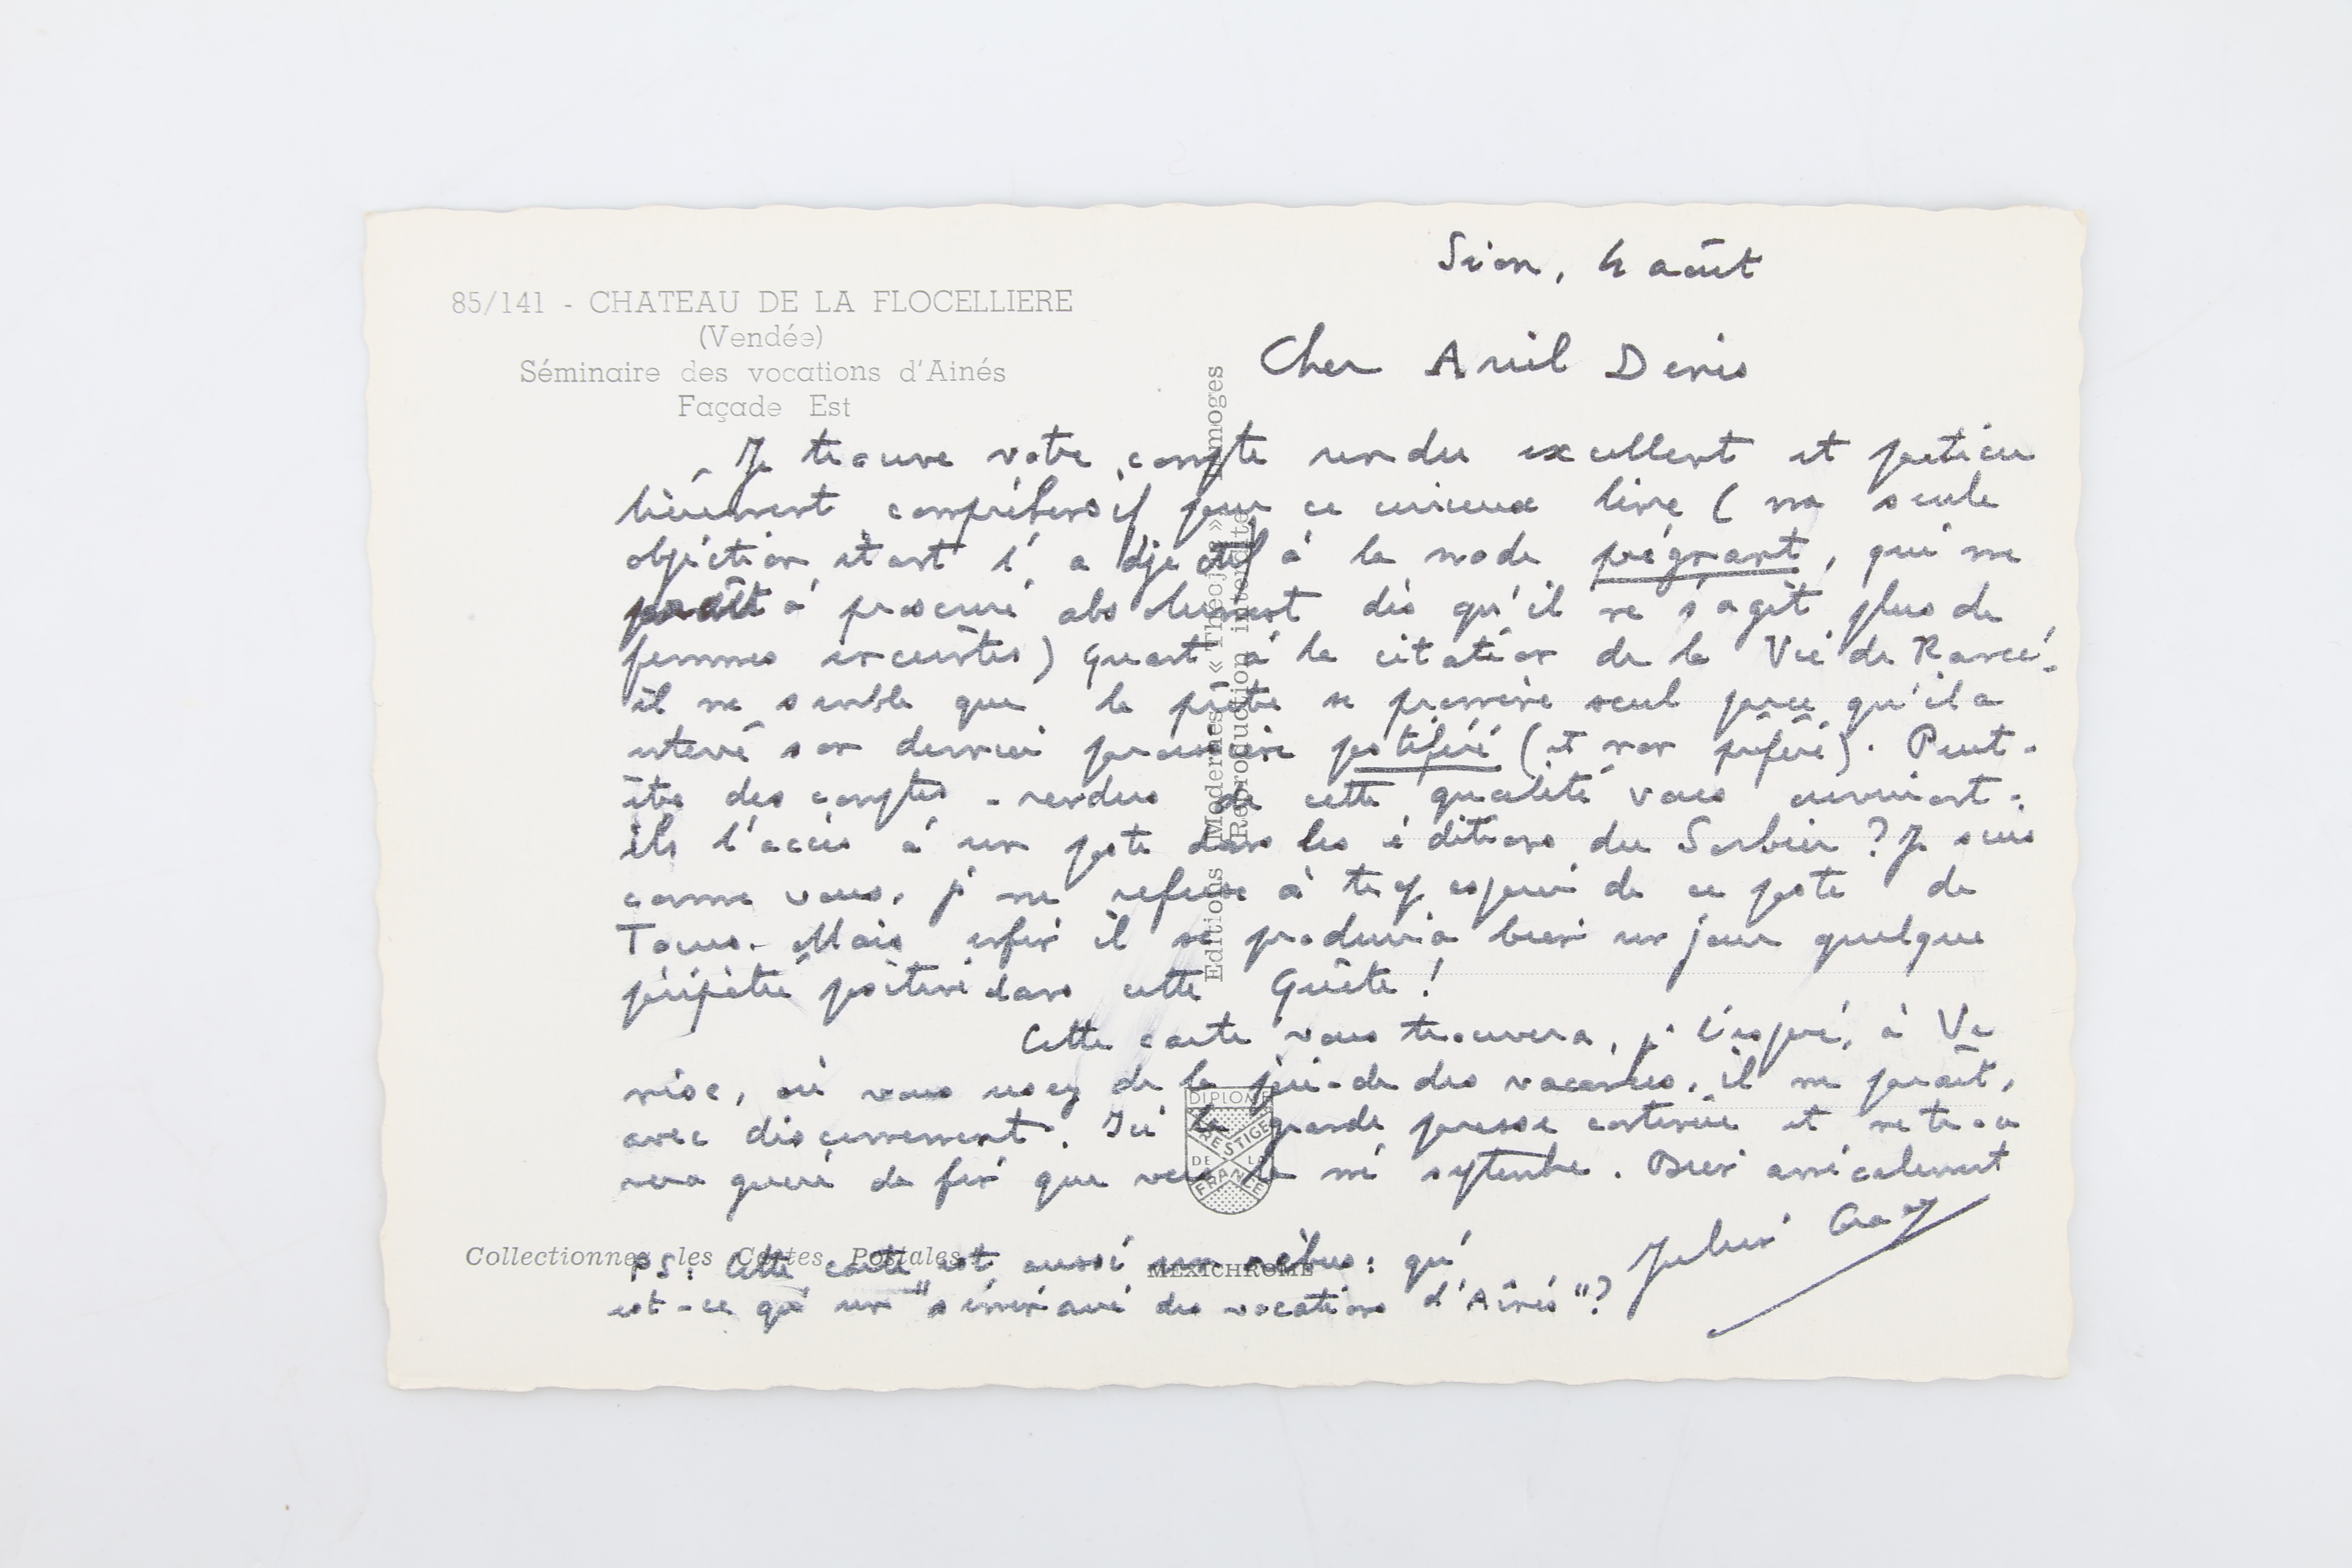 85/141 - CHATEAU DE LA FLOCELLIERE
(Vendée)
Séminaire des vocations d'Ainés
Façade Est
Sion, 4 août
Cher Denis
Je trouve votre compte rendu excellent et particu
lièrement compréhensif pour ce curieux livre (ma seule
objection étant l'adjectif à la mode prégnant, qui me
paraît à proscrire absolument dès qu'il ne s'agit plus de
femmes enceintes) Quant à la citation de la Vie de Rancé,
il me semble que le prêtre se promène seul parce qu'il a
enterré son dernier paroissien pestiféré (et non préféré). Peut-
être des comptes-rendus de cette qualité vous ouvriront-
ils l'accès à un poste dans les éditions du Sorbier ? Je suis
comme vous, je me refuse à trop espérer de ce poste de
Tours. Mais enfin il se produira bien un jour quelque
péripétie positive dans cette Quête !
Cette carte vous trouvera, je l'espère, à Ve
nise, où vous usez de la période des vacances, il me paraît,
avec discernement. Ici la grande presse continue et ne trou
vera guère de fin que vers la mi septembre. Bien amicalement
Julien Gracq
PS: Cette carte est aussi un rébus: qu'
est-ce qu'un "séminaire des vocations d'Aînés"?
Editions Modernes « Théojac » Limoges
Reproduction interdite
DIPLOME
PRESTIGE
DE LA
FRANCE
Collectionnez les Cartes Postales
MEXICHROME